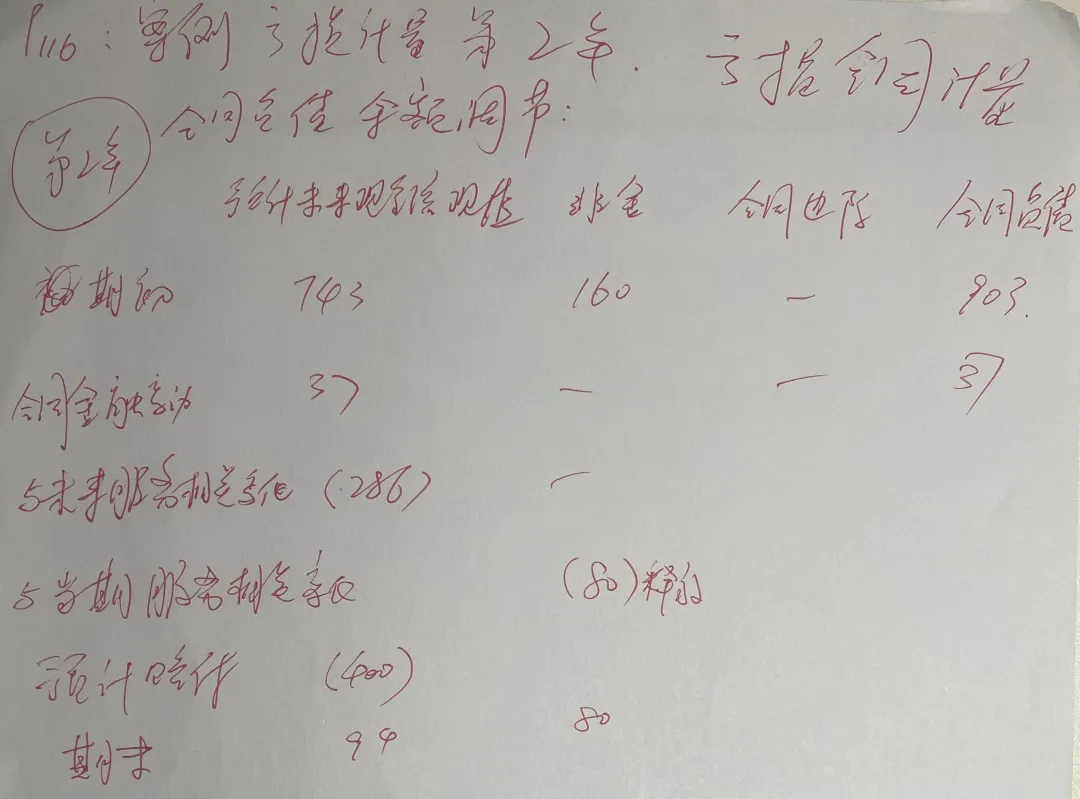 P116：案例 亏损计量 第2年. 亏损合同计量
第2年 合同负债余额调节：
预计未来现金流现值 非金 合同边际 合同负债
期初 743 160 — 903.
合同金融变动 37 — — 37
与未来服务相关变化 (286) —
与当期服务相关变化 (80)释放
预计赔付 (400)
期末 94 80